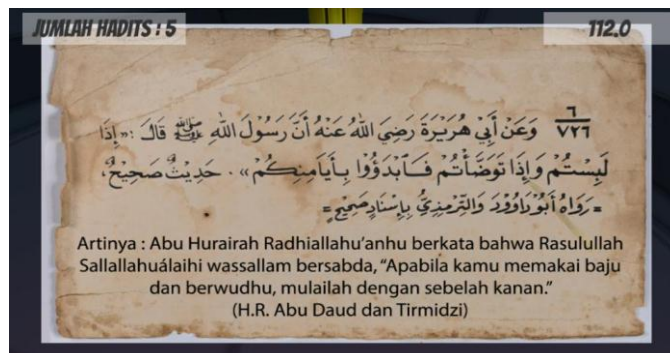 JUMLAH HADITS : 5
112.0
٦/٧٢٦ وَعَنْ أَبِي هُرَيْرَةَ رَضِيَ اللهُ عَنْهُ أَنَّ رَسُولَ اللهِ ﷺ قَالَ :« إِذَا
لَبِسْتُمْ وَإِذَا تَوَضَّأْتُمْ فَابْدَؤُوا بِأَيَامِنِكُمْ ». حَدِيثٌ صَحِيحٌ،
رَوَاهُ أَبُو دَاوُودَ وَالتِّرْمِذِيُّ بِإِسْنَادٍ صَحِيحٍ
Artinya : Abu Hurairah Radhiallahu'anhu berkata bahwa Rasulullah
Sallallahuálaihi wassallam bersabda, “Apabila kamu memakai baju
dan berwudhu, mulailah dengan sebelah kanan.”
(H.R. Abu Daud dan Tirmidzi)